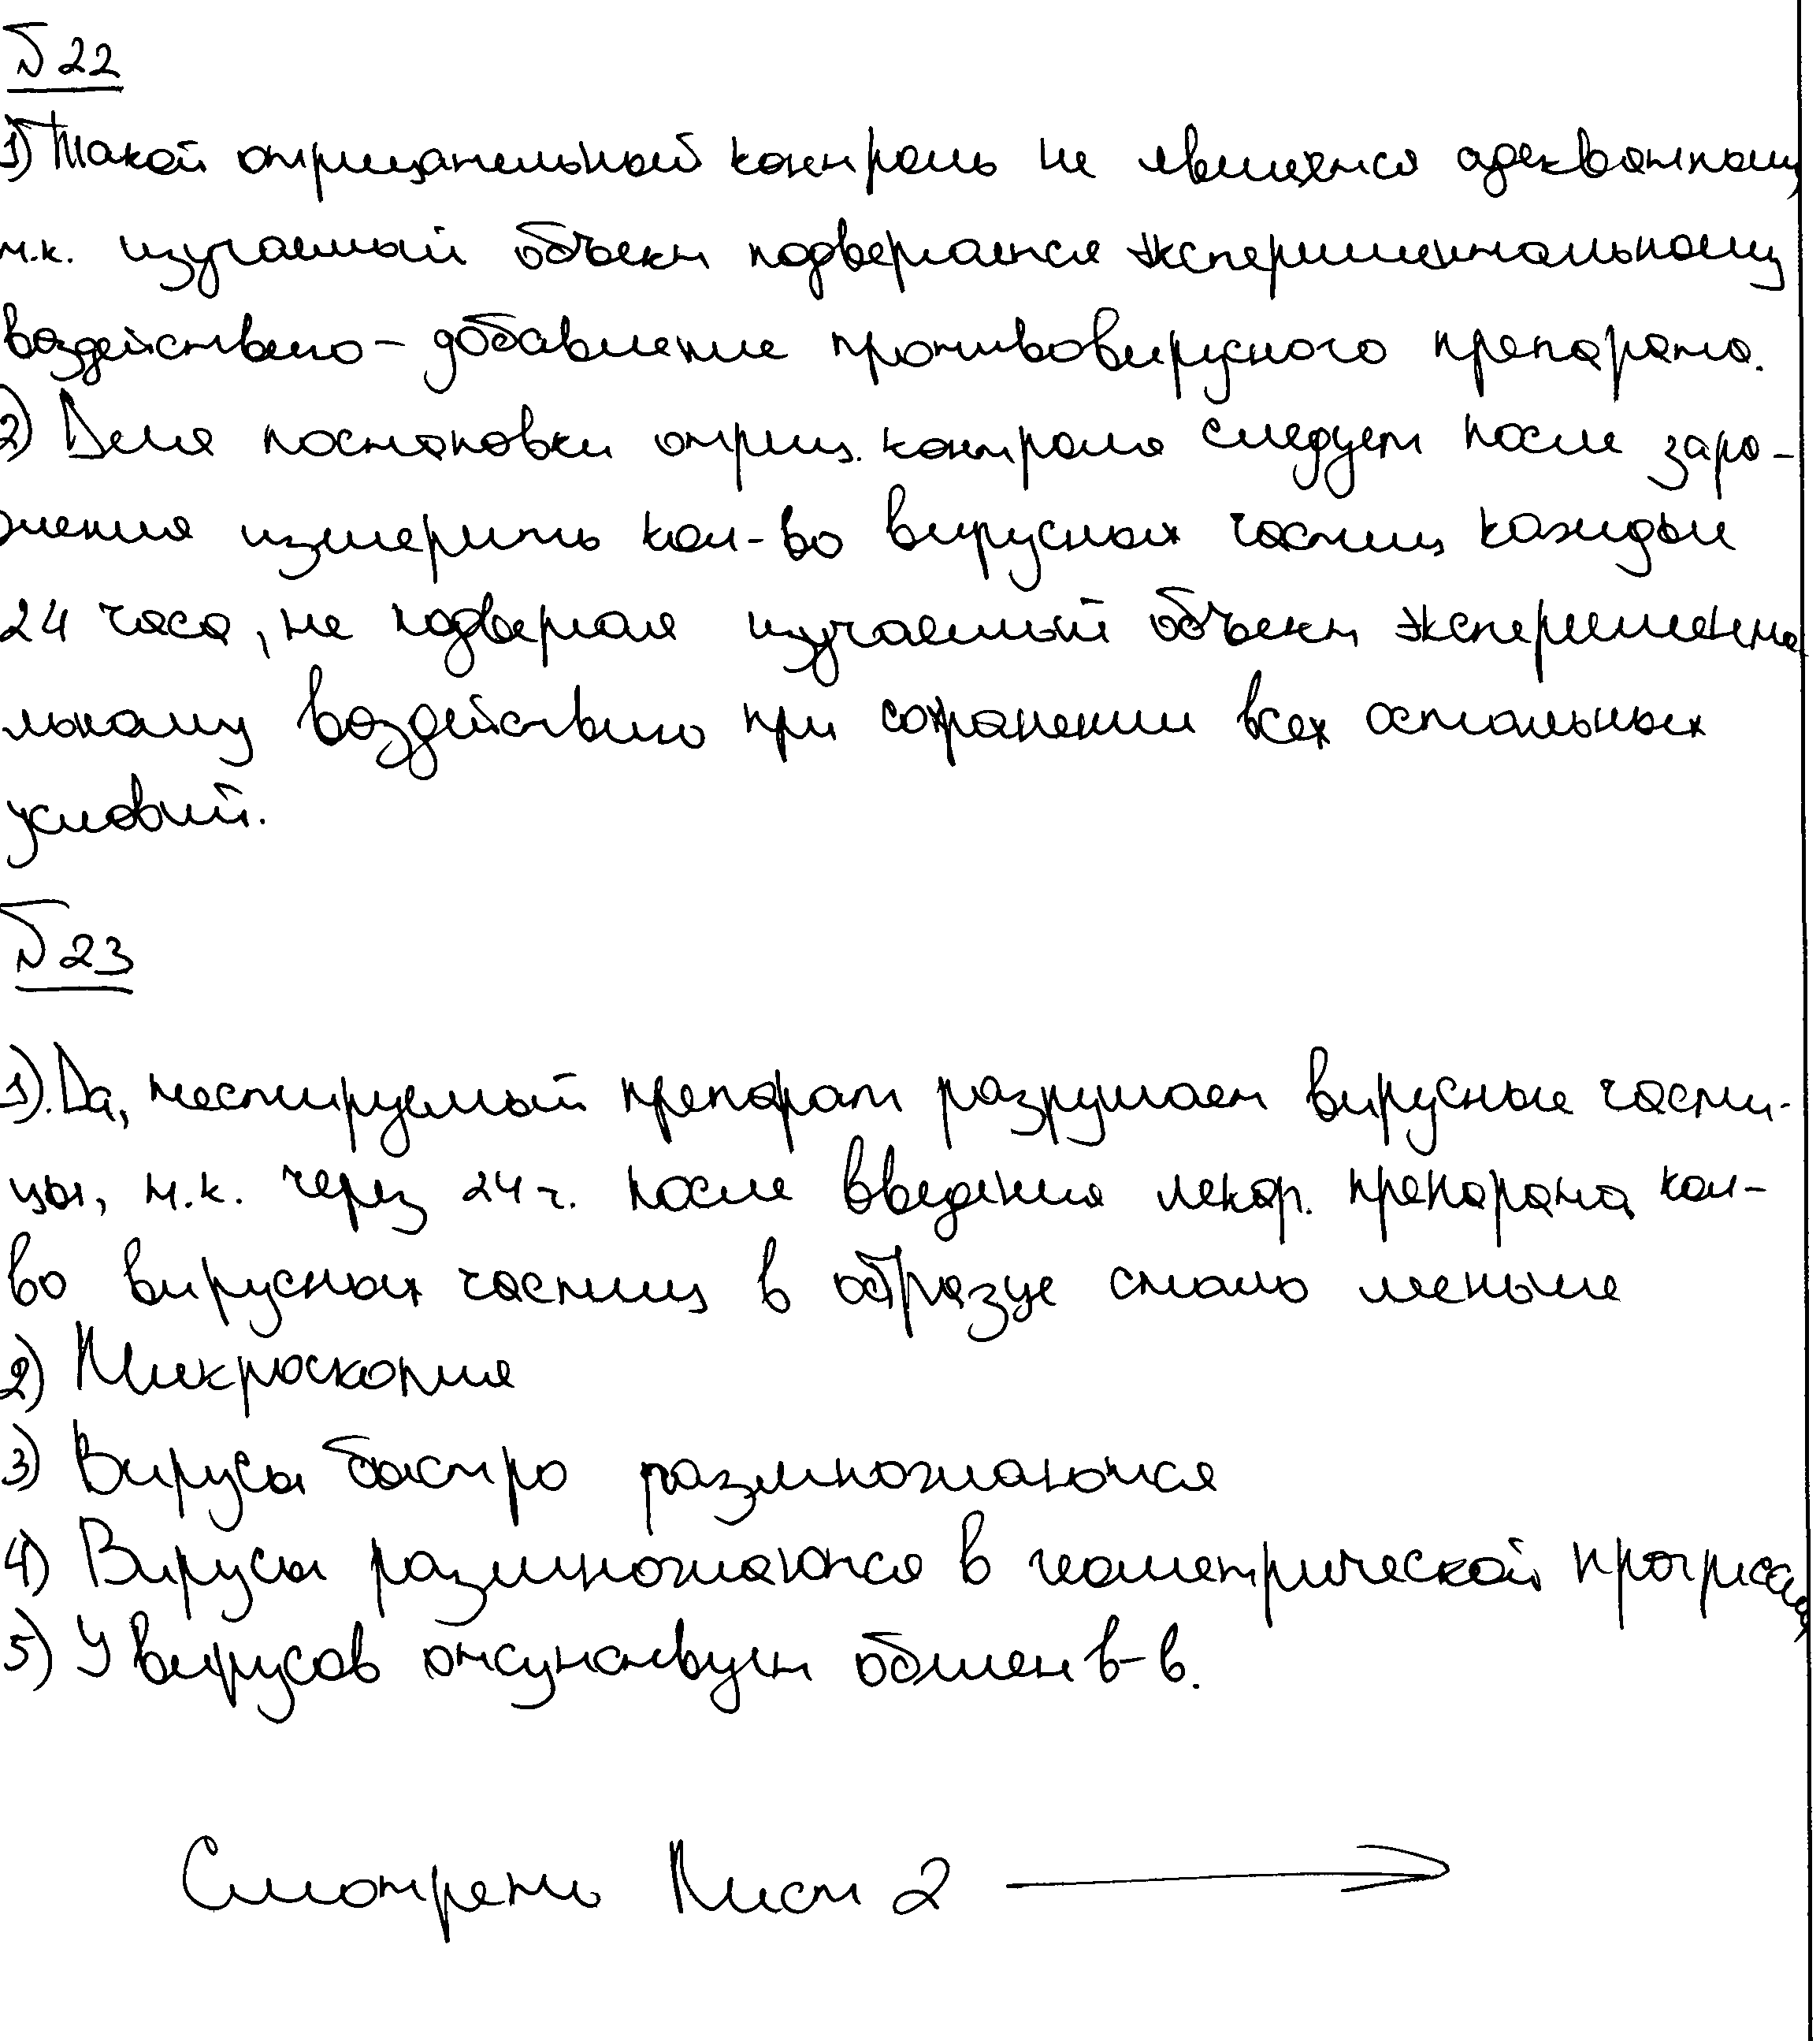 №22
1) Такой отрицательный контроль не является адекватным,
т.к. изучаемый объект подвергается экспериментальному
воздействию - добавление противовирусного препарата.
2) Для постановки отриц. контроля следует после зара-
жения измерить кол-во вирусных частиц каждые
24 часа, не подвергая изучаемый объект эксперимента
льному воздействию при сохранении всех остальных
условий.
№23
1). Да, тестируемый препарат разрушает вирусные части-
цы, т.к. через 24 ч. после введения лекар. препарата кол-
во вирусных частиц в образце стало меньше
2) Микроскопия
3) Вирусы быстро размножаются
4) Вирусы размножаются в геометрической прогрессии
5) У вирусов отсутствует обмен в-в.
Смотреть Лист 2